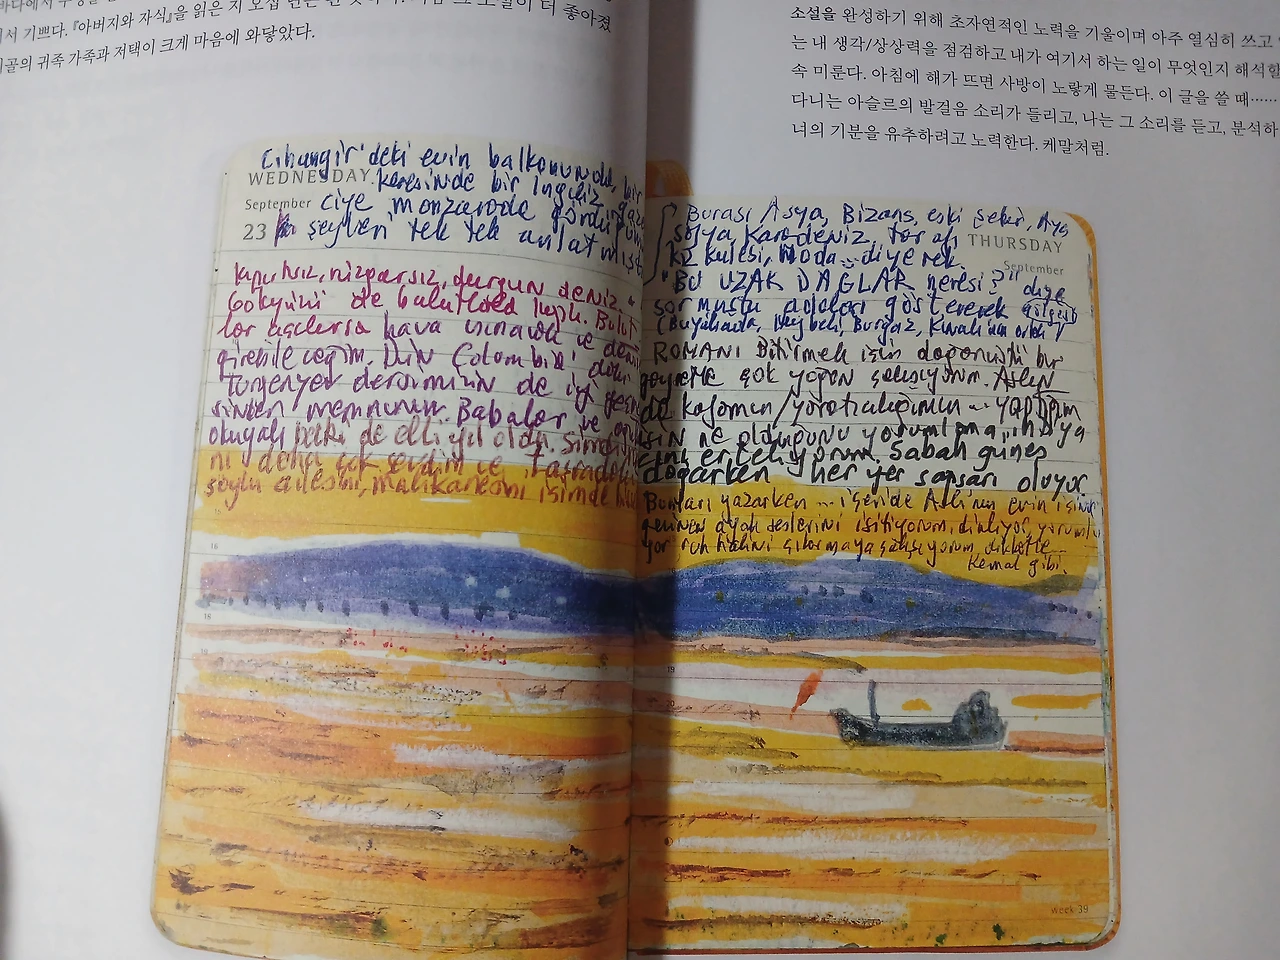 서 기쁘다. 『아버지와 자식』을 읽은 지 오십 년은 된
골의 귀족 가족과 저택이 크게 마음에 와닿았다.
Cihangir'deki evin balkonunda, bir
WEDNESDAY
keresinde bir İngiliz
September
ciye manzarada gördüğümüz
23
şeyleri tek tek anlatmıştım
kıpırtısız, rüzgarsız, durgun deniz.
Gökyüzü de bulutlarla kaplı. Bulut
lar açılırsa hava ısınacak ve denize
girebileceğim. Dün Columbia'daki
Turgenyev dersimizin de iyi
memnunum. Babalar ve oğulları
okuyalı belki de elli yıl oldu. Şimdi
daha çok sevdim ve Taşradaki
soylu ailesini, malikanesini içimde
소설을 완성하기 위해 초자연적인 노력을 기울이며 아주 열심히 쓰고
는 내 생각/상상력을 점검하고 내가 여기서 하는 일이 무엇인지 해석할
속 미룬다. 아침에 해가 뜨면 사방이 노랗게 물든다. 이 글을 쓸 때……
다니는 아슬르의 발걸음 소리가 들리고, 나는 그 소리를 듣고, 분석하
너의 기분을 유추하려고 노력한다. 케말처럼.
Burası Asya, Bizans, eski şehir, Aya
sofya, Karadeniz tarafı
THURSDAY
Kız kulesi, Moda... diyerek.
September
"Bu UZAK DAĞLAR neresi?" diye
sormuştu adaları göstererek
(Büyükada, Heybeli, Burgaz, Kınalı'nın)
ROMANI Bitirmek için doğaüstü bir
gayretle çok yoğun çalışıyorum. Aslında
da kafamın/yaratıcılığımın ... yaptığım
işin ne olduğunu yorumlamayı
erteliyorum. Sabah güneş
doğarken her yer sapsarı oluyor.
Bunları yazarken ... içeride Aslı'nın evin içinde
gezinen ayak seslerini işitiyorum, dinliyor, yorumlu
yor ruh halini çıkarmaya çalışıyorum dikkatle
Kemal gibi.
16
18
19
19
20
week 39